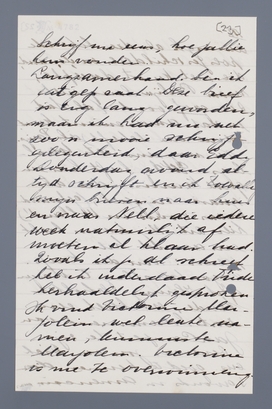 [23v]
Schrijf me eens hoe jullie
hem vonden.
Langzamerhand ben ik
uitgepraat. Deze brief
is erg lang geworden,
maar ik had nu net
zoo'n mooie schrijf
gelegenheid, daar Eddy
donderdag avond al-
tijd schrijft en ik
mijn brieven naar
en naar Nell, die iedere
week natuurlijk af
moeten al klaar had.
Zooals ik je al schreef
heb ik inderdaad
herhaaldelijk gesproken
Ik vind Victorine Mar-
jolein wel leuke na-
men, tenminste
Marjolein. Victorine
is me te overwinning